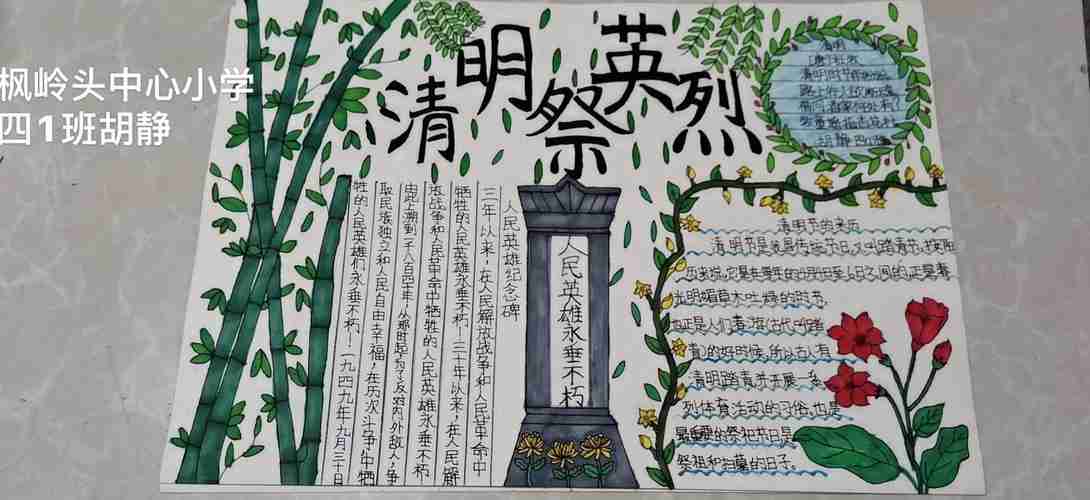 枫岭头中心小学
四1班胡静
清明祭英烈
清明
[唐]杜牧
清明时节雨纷纷,
路上行人欲断魂。
借问酒家何处有?
牧童遥指杏花村
胡静 四(1)班
人民英雄永垂不朽
人民英雄纪念碑
三年以来,在人民解放战争和人民革命中
牺牲的人民英雄永垂不朽!三十年以来,在人民解
放战争和人民革命中牺牲的人民英雄永垂不朽!
由此上溯到一千八百四十年,从那时起,为了反对内外敌人,争
取民族独立和人民自由幸福,在历次斗争中牺
牲的人民英雄们永垂不朽!一九四九年九月三十日
清明节的来历
清明节是我国传统节日,又叫踏青节,按阳
历来说,它是在每年的4月4日至6日之间的,正是春
光明媚草木吐绿的时节,
也正是人们春游(古代叫踏
青)的好时候,所以古人有
清明踏青并开展一系
列体育活动的习俗,也是
最重要的祭祀节日是
祭祖和扫墓的日子。